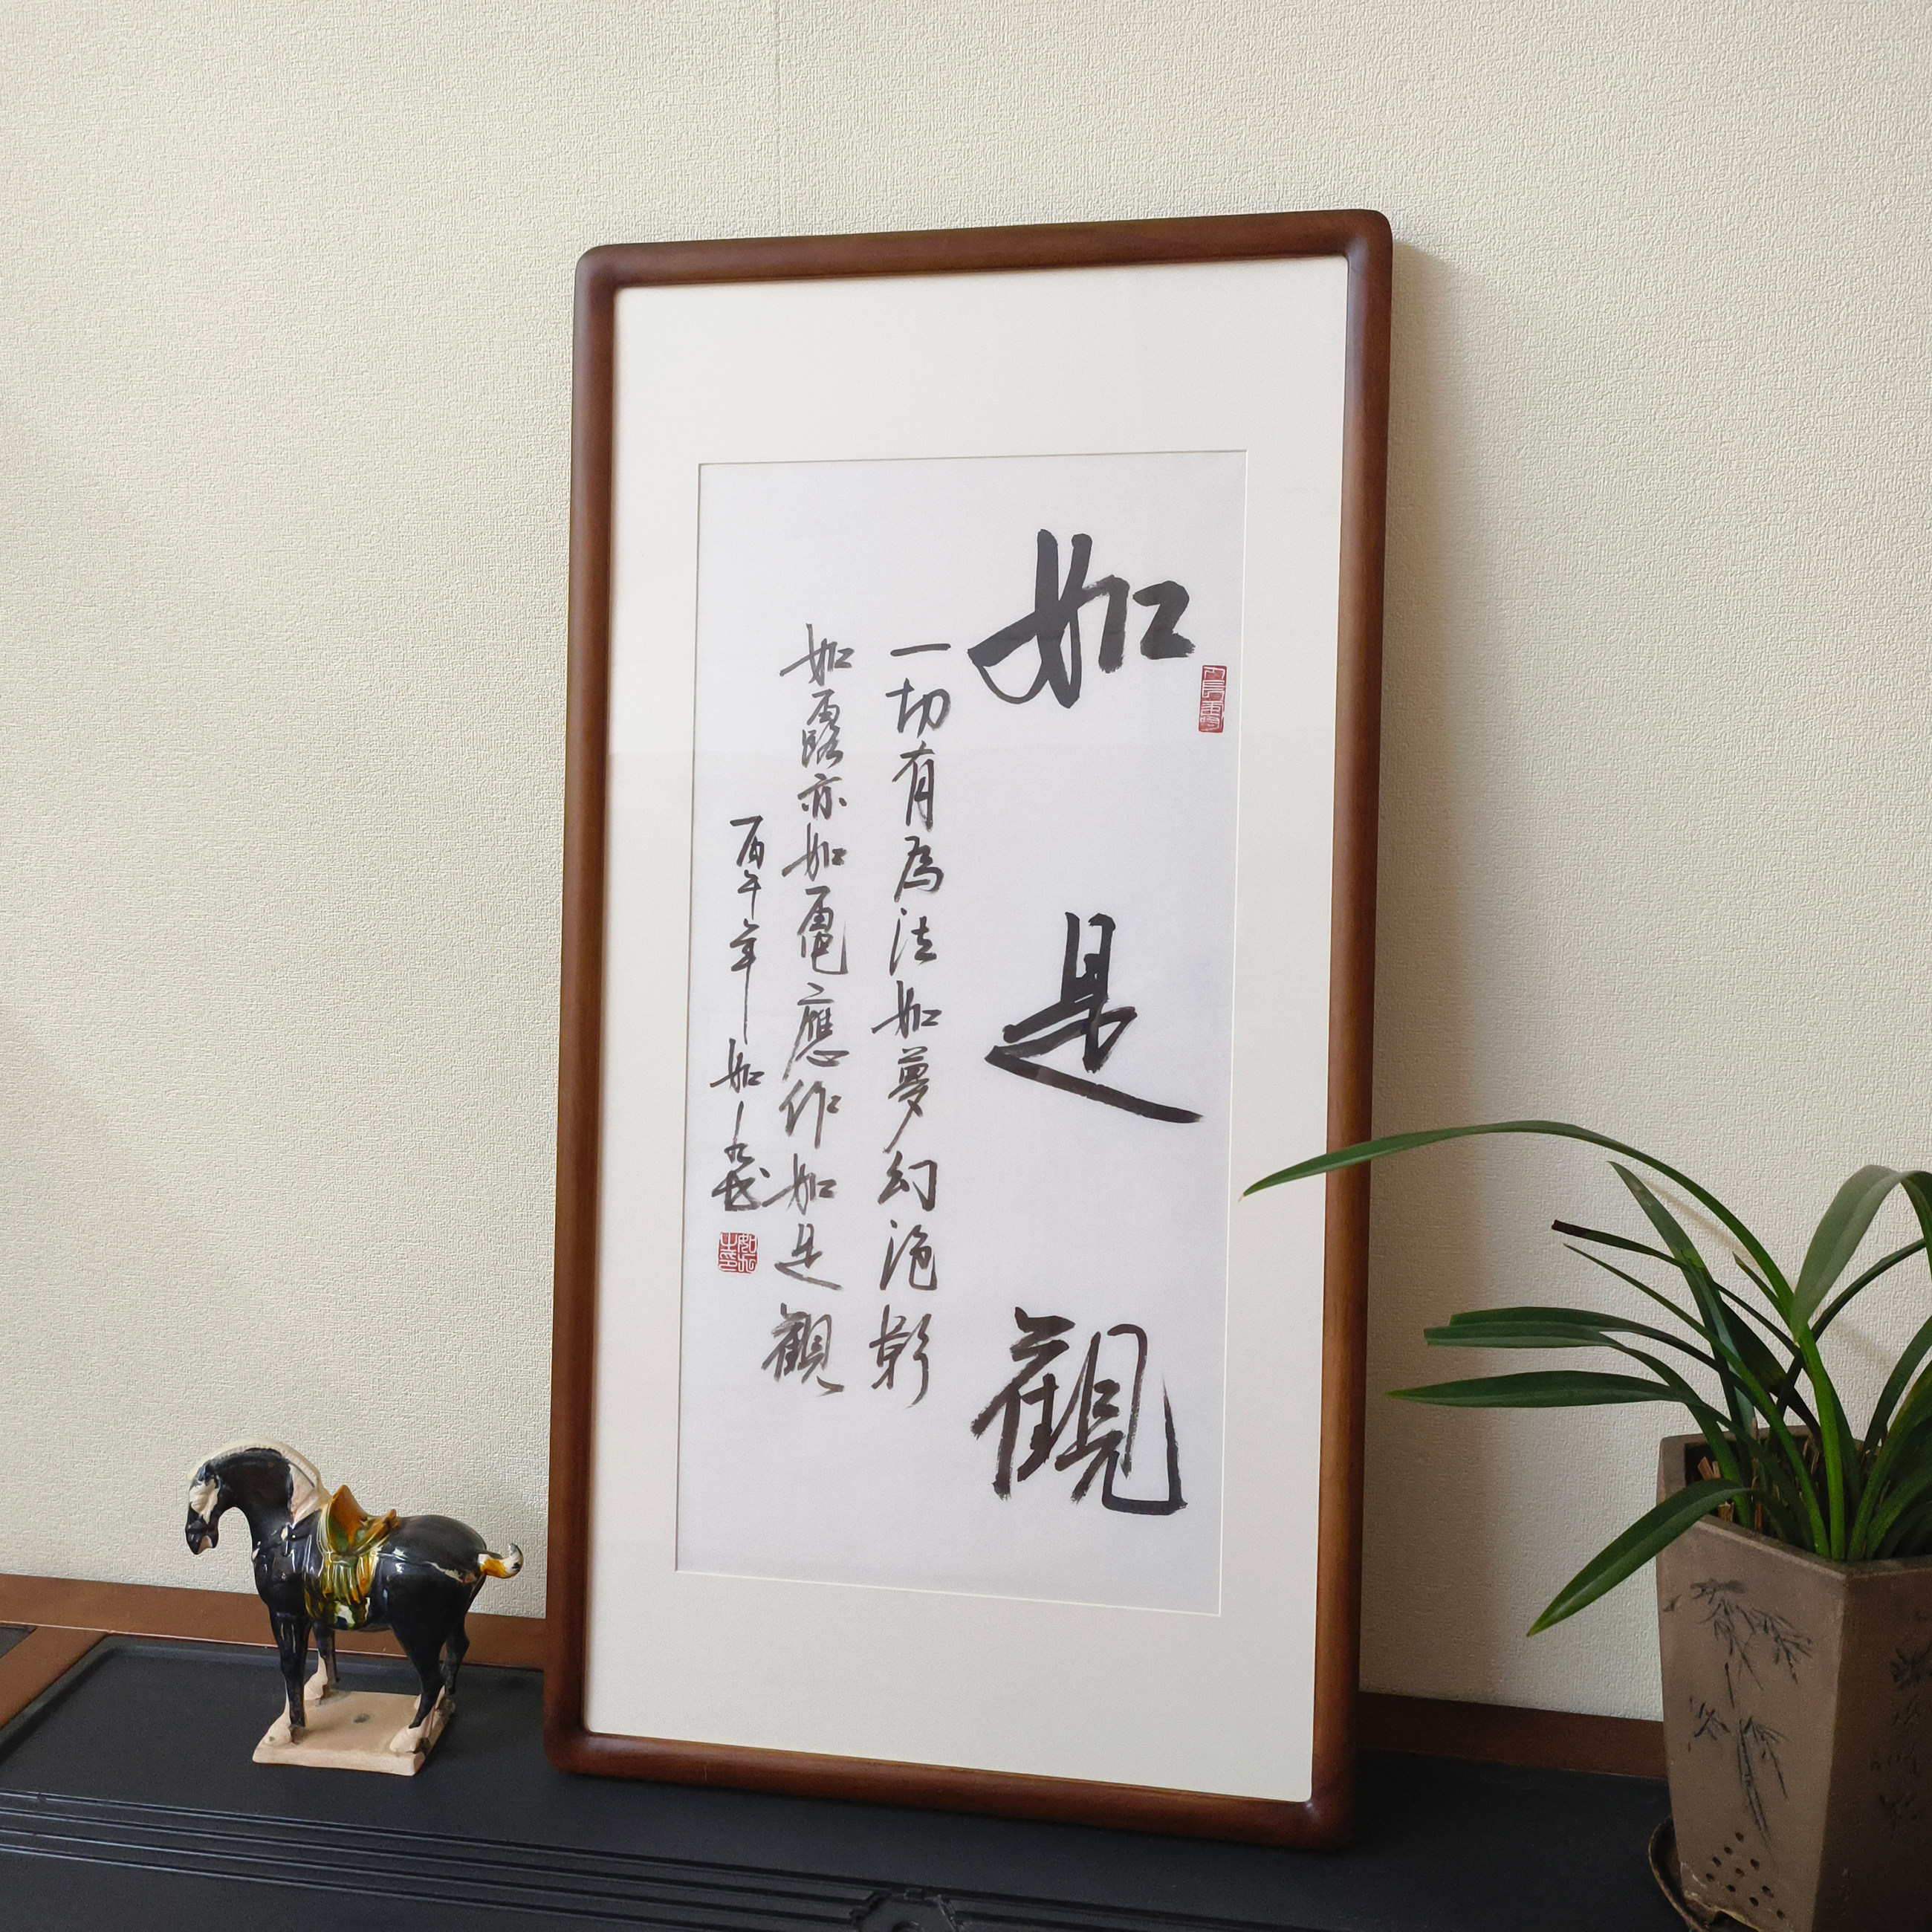 如是觀
一切有為法如夢幻泡影
如露亦如電應作如是觀
丙午年如